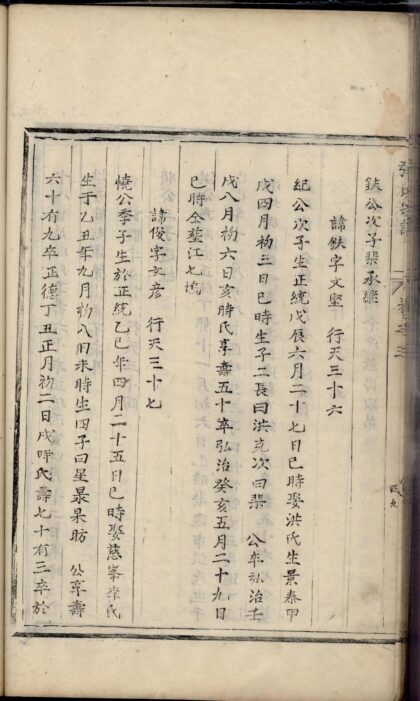 四九
公次子斐承繼
諱鈇字文堅 行天三十六
紀公次子生正統戊辰六月二十七日巳時娶洪氏生景泰甲
戌四月初三日巳時生子二長曰洪克次曰斐 公卒弘治壬
戌八月初六日亥時氏享壽五十卒弘治癸亥五月二十九日
巳時仝塟江七塢
諱俊字文彥 行天三十七
公季子生於正統乙巳年四月二十五日巳時娶慈峯李氏
生于乙丑年九月初八日未時生四子曰星最果昉 公享壽
六十有九卒正德丁丑正月初二日戌時氏壽七十有三卒於